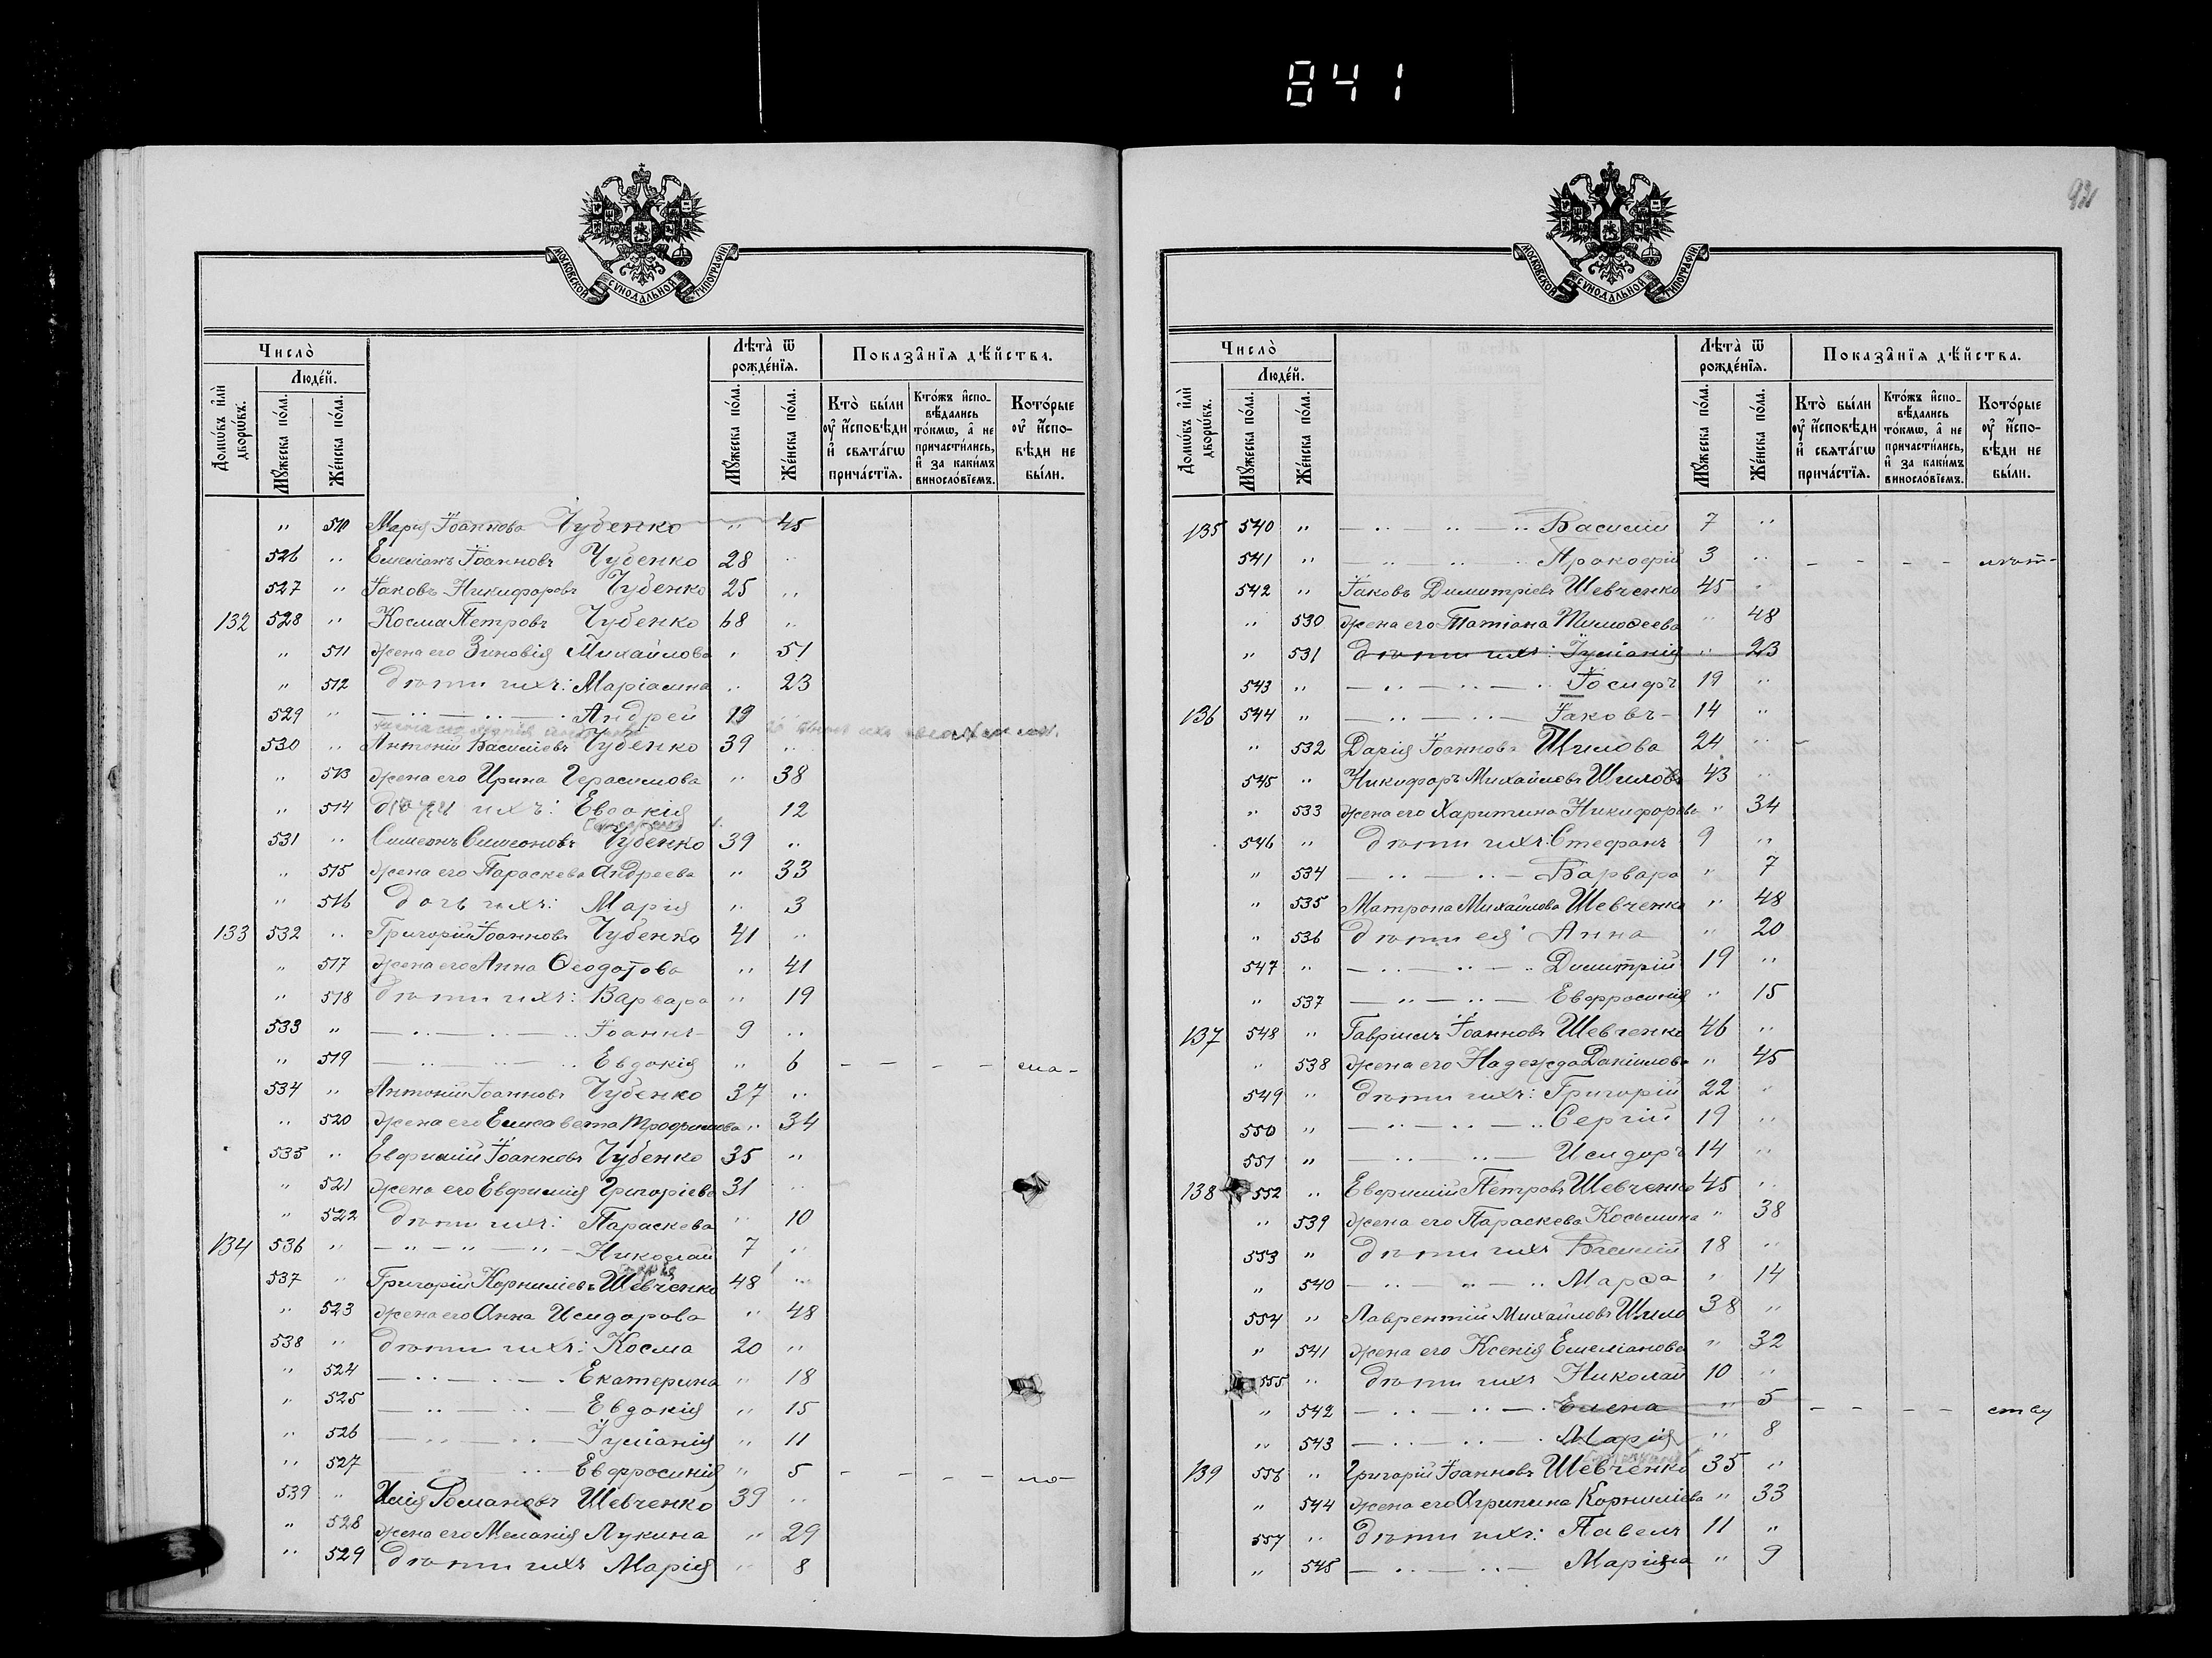 841
92
МОСКОВСКОЙ СУНОДАЛЬНОЙ ТИПОГРАФІИ
Число̀
Люде́й.
Домѡ́въ и҆лѝ дворѡ́въ.
Мꙋ́жеска по́ла.
Же́нска по́ла.
Лѣ́та ѿ рожде́нїѧ.
Мꙋ́жеска по́ла.
Же́нска по́ла.
Показа̑нїѧ дѣ́йства.
Кто̀ бы́ли ᲂу҆ и҆́сповѣди и҆ свѧта́гѡ прича́стїѧ.
Кто́жъ и҆спо-
вѣ́дались
то́кмѡ, а҆ не
причасти́лись,
и҆ за каки́мъ
виносло́вїемъ.
Кото́рые ᲂу҆ и҆́спо-
вѣди не бы́ли.
„ 510 Марія Іоаннова Чубенко „ 45
526 „ Емеліанъ Іоанновъ Чубенко 28 „
527 „ Іаковъ Никифоровъ Чубенко 25 „
132 528 „ Косма Петровъ Чубенко 68 „
„ 511 жена его Зиновія Михайлова „ 51
„ 512 дѣти ихъ: Маріамна „ 23
529 „ — „ — „ — Андрей 19
530 „ Антоній Василіевъ Чубенко 39 „
„ 513 жена его Ирина Герасимова „ 38
„ 514 дочь ихъ: Евдокія 12
531 „ Симеонъ Симеоновъ Чубенко 39 „
„ 515 жена его Параскева Андреева „ 33
„ 516 дочь ихъ: Марія „ 3
133 532 „ Григорій Іоанновъ Чубенко 41 „
„ 517 жена его Анна Ѳеодотова „ 41
„ 518 дѣти ихъ: Варвара „ 19
533 „ — „ — „ — Іоаннъ 9 „
„ 519 — „ — „ — Евдокія „ 6 — — — —
534 „ Антоній Іоанновъ Чубенко 37 „
„ 520 жена его Елисавета Трофимова „ 34
535 „ Евфимій Іоанновъ Чубенко 35 „
„ 521 жена его Евфимія Григоріева 31 „
„ 522 дѣти ихъ: Параскева „ 10
134 536 „ — „ — „ — Николай 7 „
537 „ Григорій Корниліевъ Шевченко 48 „
„ 523 жена его Анна Исидорова „ 48
538 „ дѣти ихъ: Косма 20 „
„ 524 — „ — „ — Екатерина „ 18
„ 525 — „ — „ — Евдокія „ 15
„ 526 — „ — „ — Іуліанія „ 11
„ 527 — „ — „ — Евфросинія „ 5 — — — —
539 „ Илія Романовъ Шевченко 39 „
„ 528 жена его Меланія Лукина „ 29
„ 529 дѣти ихъ Марія „ 8
МОСКОВСКОЙ СУНОДАЛЬНОЙ ТИПОГРАФІИ
Число̀
Люде́й.
Домѡ́въ и҆лѝ дворѡ́въ.
Мꙋ́жеска по́ла.
Же́нска по́ла.
Лѣ́та ѿ рожде́нїѧ.
Мꙋ́жеска по́ла.
Же́нска по́ла.
Показа̑нїѧ дѣ́йства.
Кто̀ бы́ли ᲂу҆ и҆́сповѣди и҆ свѧта́гѡ прича́стїѧ.
Кто́жъ и҆спо-
вѣ́дались
то́кмѡ, а҆ не
причасти́лись,
и҆ за каки́мъ
виносло́вїемъ.
Кото́рые ᲂу҆ и҆́спо-
вѣди не бы́ли.
135 540 „ — „ — „ — Василій 7 „
541 „ — „ — „ — Прокофій 3 „ — — — —
542 „ Іаковъ Димитріевъ Шевченко 45 „
„ 530 жена его Татіана Тимоѳеева „ 48
„ 531 дѣти ихъ: Іуліанія „ 23
543 „ — „ — „ — Іосифъ 19 „
136 544 „ — „ — „ — Іаковъ 14 „
„ 532 Дарія Іоаннова Шилова 24 „
545 „ Никифоръ Михайловъ Шиловъ 43 „
„ 533 жена его Харитина Никифорова „ 34
546 „ дѣти ихъ: Стефанъ 9 „
„ 534 — „ — „ — Варвара „ 7
„ 535 Матрона Михайлова Шевченко „ 48
„ 536 дѣти ея: Анна „ 20
547 „ — „ — „ — Димитрій 19 „
„ 537 — „ — „ — Евфросинія „ 15
137 548 „ Гавріилъ Іоанновъ Шевченко 46 „
„ 538 жена его Надежда Даніилова „ 45
549 „ дѣти ихъ: Григорій 22 „
550 „ — „ — „ — Сергій 19 „
551 „ — „ — „ — Исидоръ 14 „
138 552 „ Евфимій Петровъ Шевченко 45 „
„ 539 жена его Параскева Косьмина „ 38
553 „ дѣти ихъ Василій 18 „
„ 540 — „ — „ — Марѳа „ 14
554 „ Лаврентій Михайловъ Шило 38 „
„ 541 жена его Ксенія Емеліанова „ 32
555 „ дѣти ихъ Николай 10 „
„ 542 — „ — „ — Елена „ 5 — — — —
„ 543 — „ — „ — Марія „ 8
139 556 „ Григорій Іоанновъ Шевченко 35 „
„ 544 жена его Агрипина Корниліева „ 33
557 „ дѣти ихъ: Павелъ 11 „
„ 545 — „ — „ — Маріяна „ 9